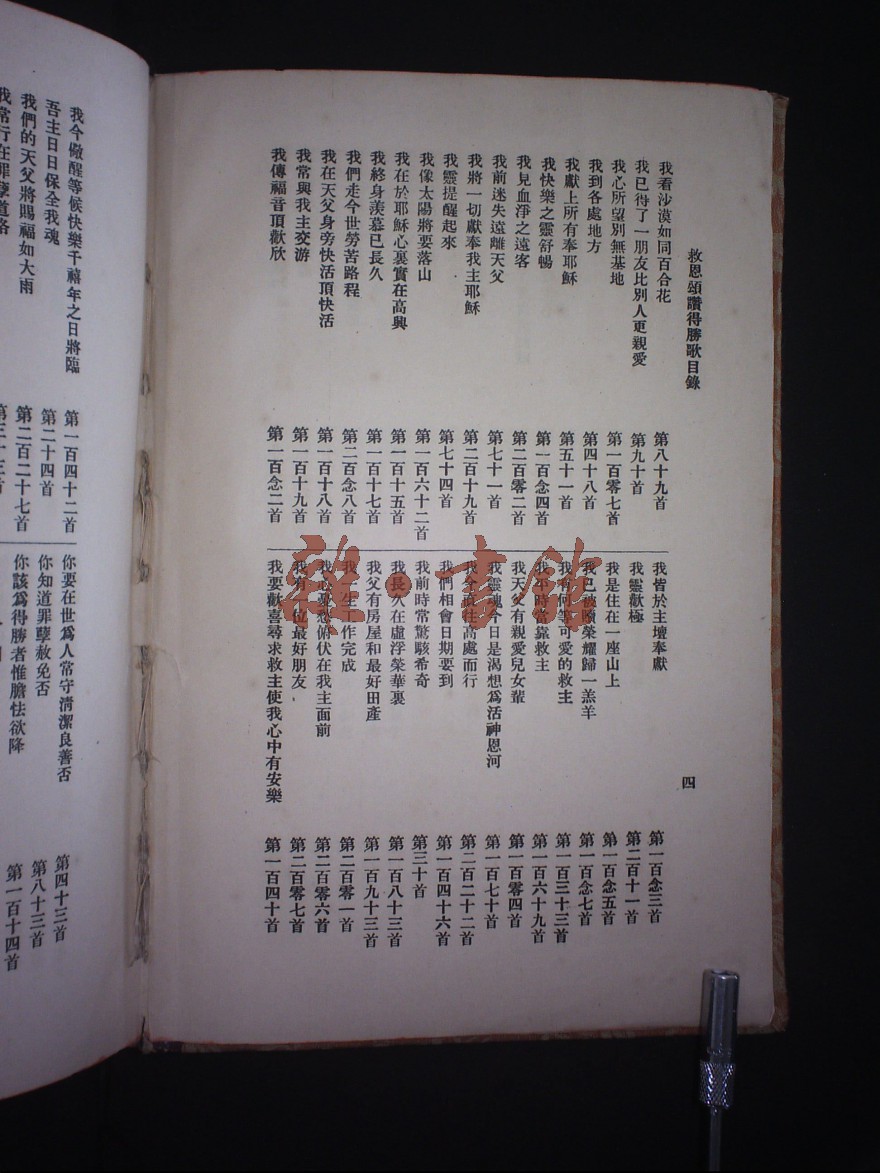 救恩頌讚得勝歌目錄
四
我看沙漠如同百合花 第八十九首
我已得了一朋友比別人更親愛 第九十首
我心所望別無基地 第一百零七首
我到各處地方 第四十八首
我獻上所有奉耶穌 第五十一首
我快樂之靈舒暢 第一百念四首
我見血淨之遠客 第二百零二首
我前迷失遠離天父 第七十一首
我將一切獻奉我主耶穌 第二百十九首
我靈提醒起來 第七十四首
我像太陽將要落山 第一百六十二首
我在於耶穌心裏實在高興 第一百十五首
我終身羨慕已長久 第一百十七首
我們走今世勞苦路程 第二百念八首
我在天父身旁快活頂快活 第一百十八首
我常與我主交游 第一百十九首
我傳福音頂歡欣 第一百念二首
我皆於主壇奉獻 第一百念三首
我靈歡極 第二百十一首
我是住在一座山上 第一百念五首
我已被贖榮耀歸一羔羊 第一百念七首
我有何等可愛的救主 第一百三十三首
我平時當靠救主 第一百六十九首
我天父有親愛兒女輩 第一百零四首
我靈魂今日是渴想爲活神恩河 第一百七十首
我今前往高處而行 第二百二十二首
我們相會日期要到 第一百四十六首
我前時常驚駭希奇 第三十首
我長久在虛浮榮華裏 第一百八十三首
我父有房屋和最好田產 第一百九十三首
我一生工作完成 第二百零一首
我憂愁俯伏在我主面前 第二百零六首
我有一位最好朋友 第二百零七首
我要歡喜尋求救主使我心中有安樂 第一百四十首
我今儆醒等候快樂千禧年之日將臨 第一百四十二首
吾主日日保全我魂 第二十四首
我們的天父將賜福如大雨 第二百二十七首
我常行在罪孽道路 第三十三首
你要在世爲人常守清潔良善否 第四十三首
你知道罪孽赦免否 第八十三首
你該爲得勝者惟膽怯欲降 第一百十四首
雜·書館